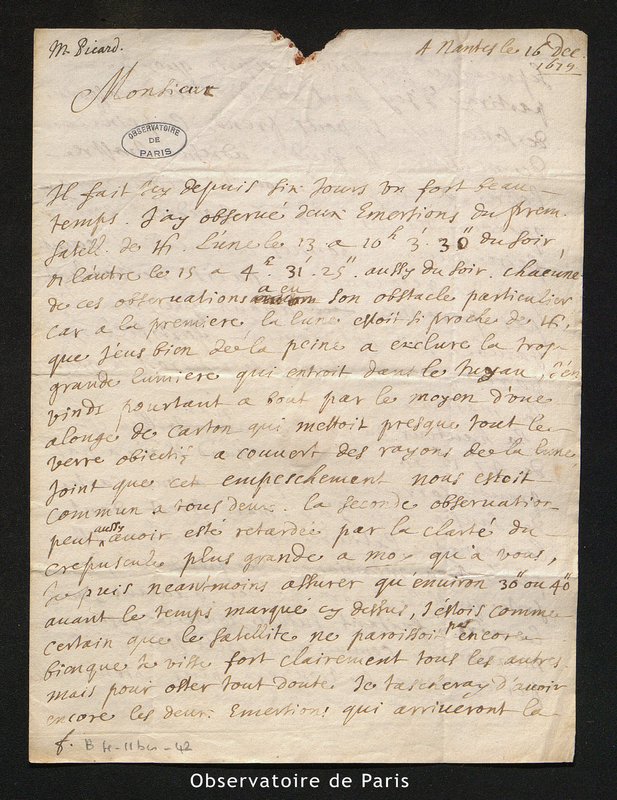 Mr Picard.
A Nantes le 16 Dec
1679
Monsieur
OBSERVATOIRE
DE
PARIS
Il fait Icy depuis six Jours un fort beau
temps. J'ay observé deux Emersions du prem.
satell. de ♃. L'une le 13 a 10h 3' 30" du soir,
et l'autre le 15 a 4h. 31'. 25". aussy du soir. chacune
de ces observations a eu son obstacle particulier
car a la premiere la lune estoit si proche de ♃,
que J'eus bien de la peine a exclure la trop
grande lumiere qui entroit dans le tuyau, J'en
vinds pourtant a bout par le moyen d'une
alonge de carton qui mettoit presque tout le
verre obiectif a couvert des rayons de la lune
Joint que cet empeschement nous estoit
commun a tous deux. la seconde observation
peut aussy avoir esté retardée par la clarté du
crepuscule plus grande a moy qu'a vous,
Je puis neantmoins assurer qu'environ 30" ou 40"
avant le temps marqué cy dessus, J'estois comme
certain que le satellite ne paroissoit pas encore
bienque Je visse fort clairement tous les autres
mais pour oster tout doute Je tascheray d'avoir
encore les deux Emersions qui arriveront la
f. B 4-11 bis - 42
Observatoire de Paris